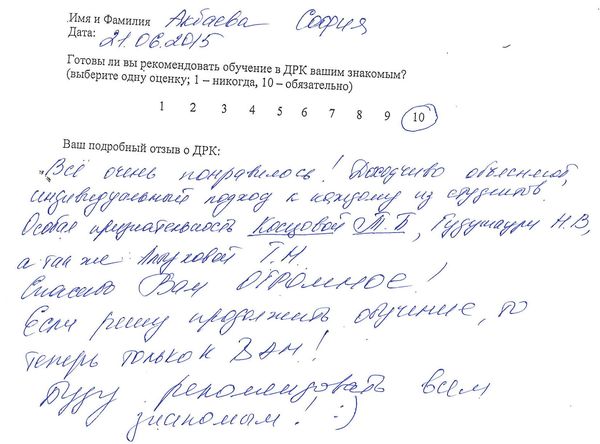 Имя и Фамилия Акбаева София
Дата: 21.06.2015
Готовы ли вы рекомендовать обучение в ДРК вашим знакомым?
(выберите одну оценку; 1 – никогда, 10 – обязательно)
1 2 3 4 5 6 7 8 9 10
Ваш подробный отзыв о ДРК:
Всё очень понравилось! Доходчиво объясняют,
индивидуальный подход к каждому из студентов.
Особая признательность Касцовой Т.Б, Гудушаури Н.В,
а так же Т.Н.
Спасибо Вам ОГРОМНОЕ!
Если решу продолжить обучение, то
теперь только к ВАМ!
Буду рекоммидовать всем
знакомым! :)